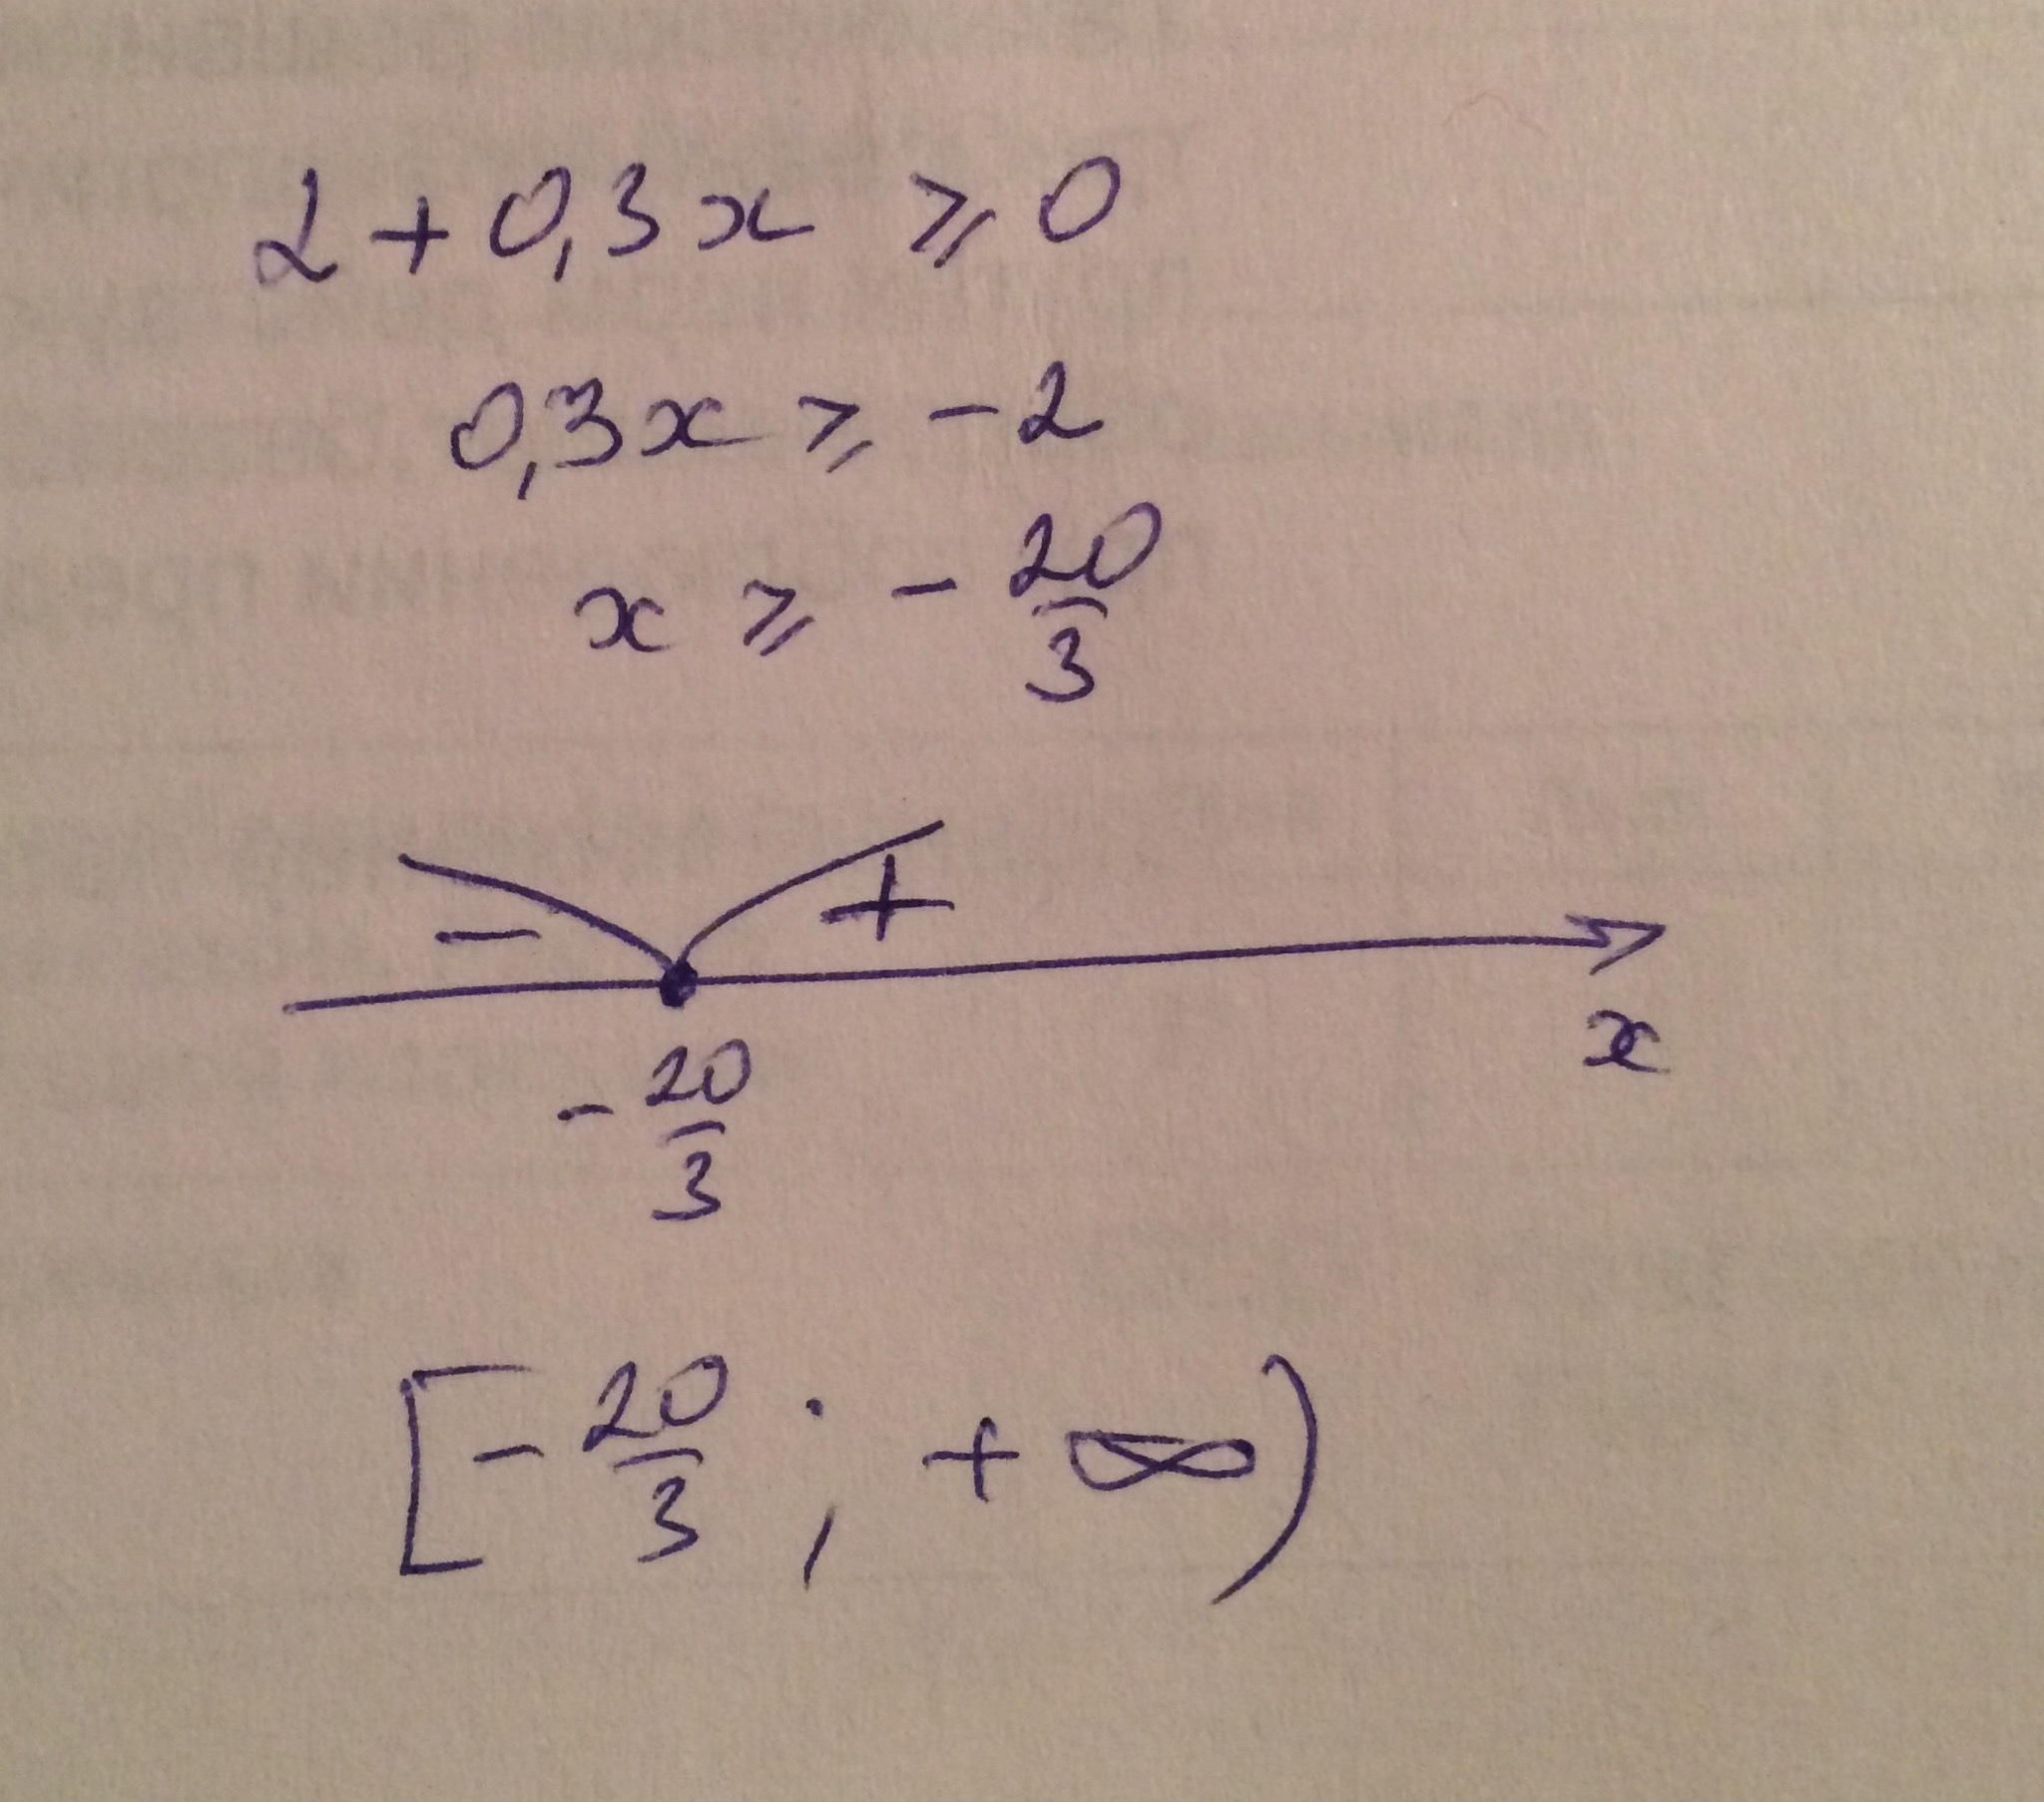 2 + 0,3x ⩾ 0
0,3x ⩾ -2
x ⩾ - 20/3
- +
x
- 20/3
[- 20/3 ; + ∞)